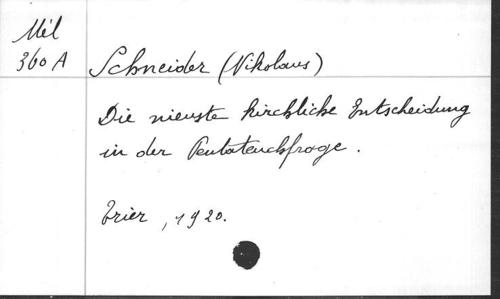 Mél
360 A
Schneider (Nikolaus)
Die nieuste kirchliche Entscheidung
in der Pentateuchfrage.
Trier, 1920.